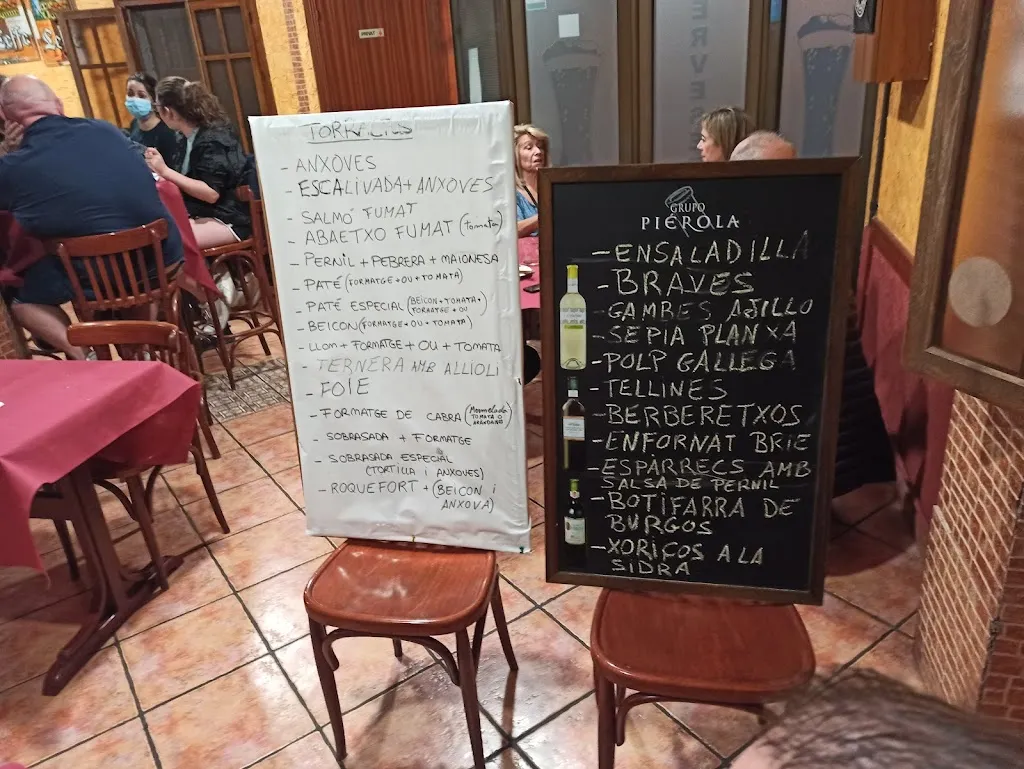 PRIVAT
TORRADES
- ANXOVES
- ESCALIVADA + ANXOVES
- SALMÓ FUMAT
- ABAETXO FUMAT (tomata)
- PERNIL + PEBRERA + MAIONESA
- PATÉ (FORMATGE + OU + TOMATA)
- PATÉ ESPECIAL (BEICON + TOMATA +
FORMATGE + OU)
- BEICON (FORMATGE + OU + TOMATA)
- LLOM + FORMATGE + OU + TOMATA
- TERNERA AMB ALLIOLI
- FOIE
- FORMATGE DE CABRA (Mermelada
TOMATA O
ARANDANO)
- SOBRASADA + FORMATGE
- SOBRASADA ESPECIAL
(TORTILLA I ANXOVES)
- ROQUEFORT + (BEICON i
ANXOVA)
GRUPO
PIÉROLA
- ENSALADILLA
- BRAVES
- GAMBES AJILLO
- SEPIA PLANXA
- POLP GALLEGA
- TELLINES
- BERBERETXOS
- ENFORNAT BRIE
- ESPARRECS AMB
SALSA DE PERNIL
- BOTIFARRA DE
BURGOS
- XORIÇOS A LA
SIDRA